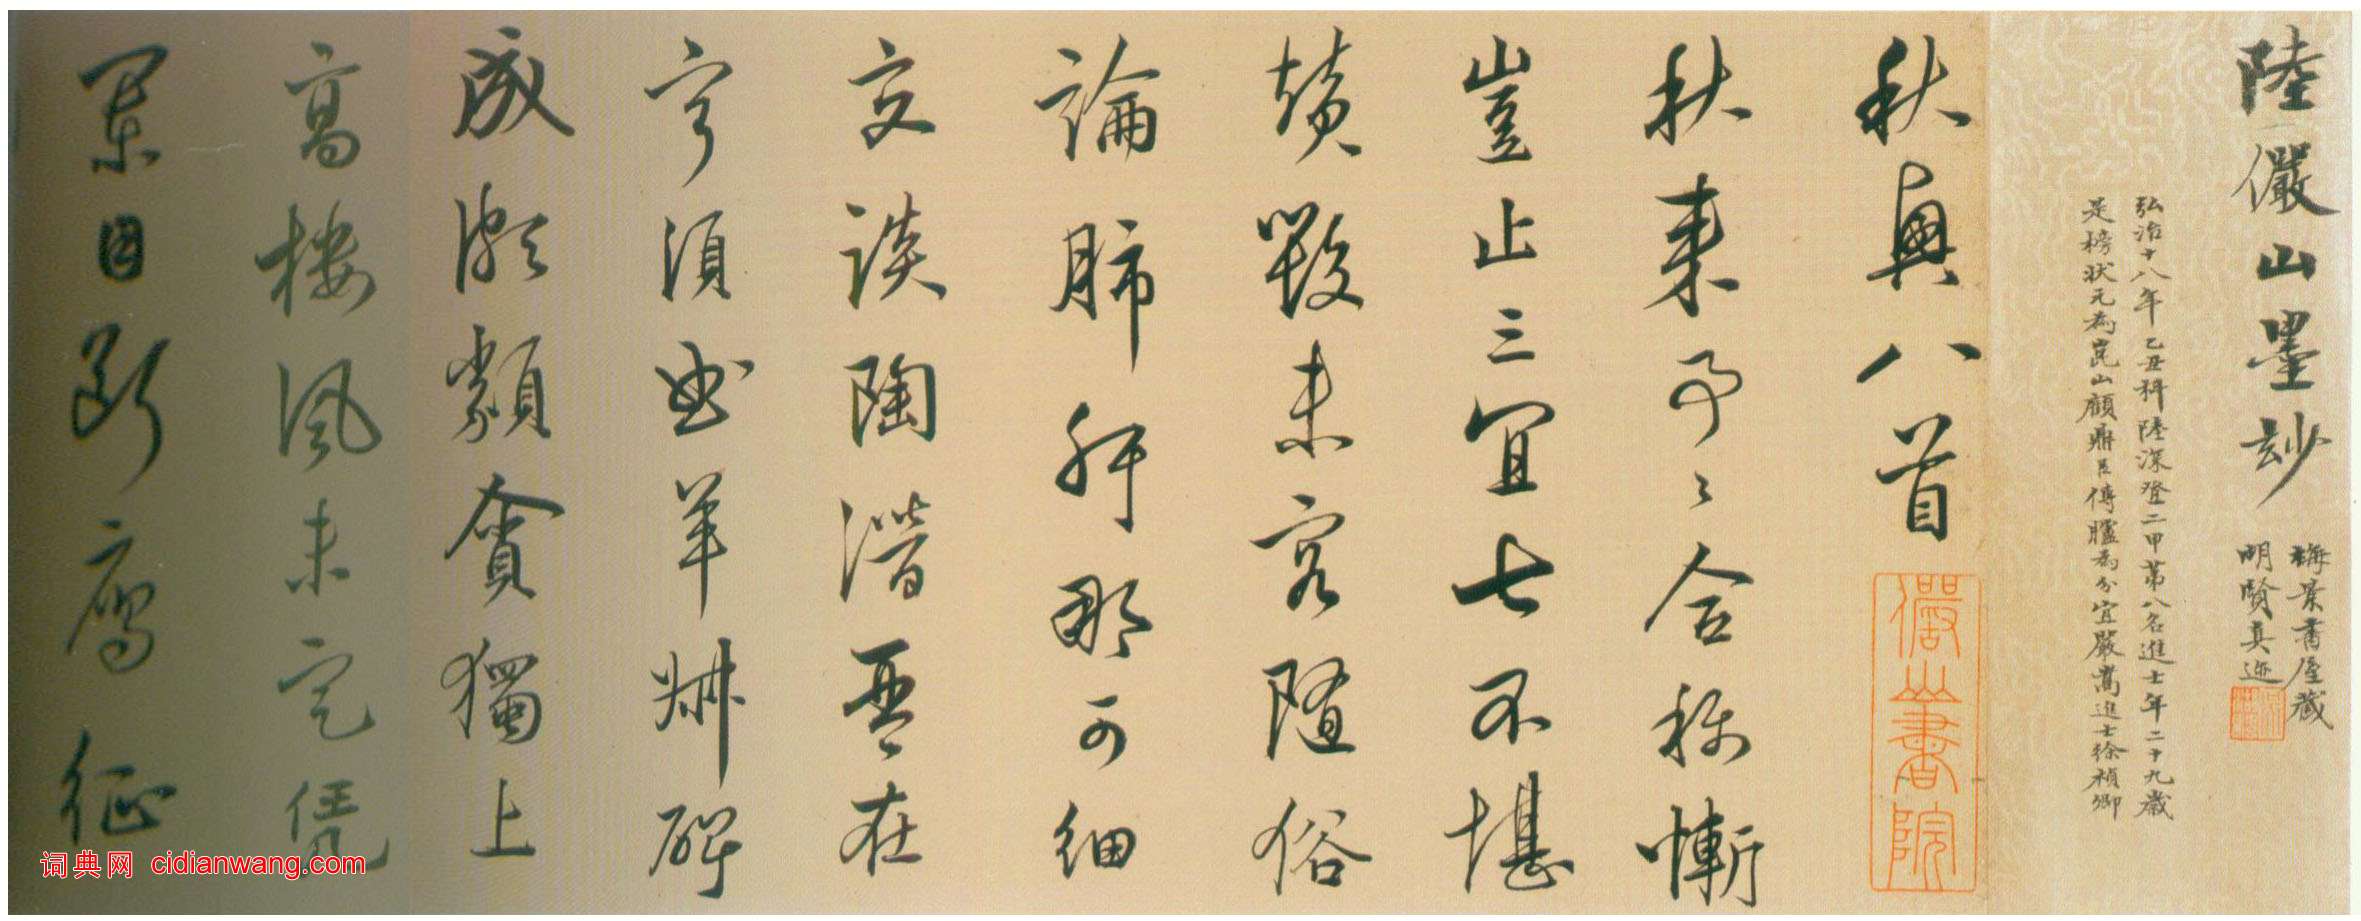 陸儼山墨玅
梅景書屋藏
明賢真迹
弘治十八年乙丑科陸深登二甲第八名進士年二十九歲
是榜狀元為崑山顧鼎臣傳臚為分宜嚴嵩進士徐禎卿
秋興八首
儼山書院
秋来事〻合称慚
豈止三宜七不堪
未容隨俗
論肺肝那可細
交談陶潛琴在
寧須曲羊叔碑
成頗類貪獨上
高樓風未定凭
闌目斷鴈征
词典网 cidianwang.com